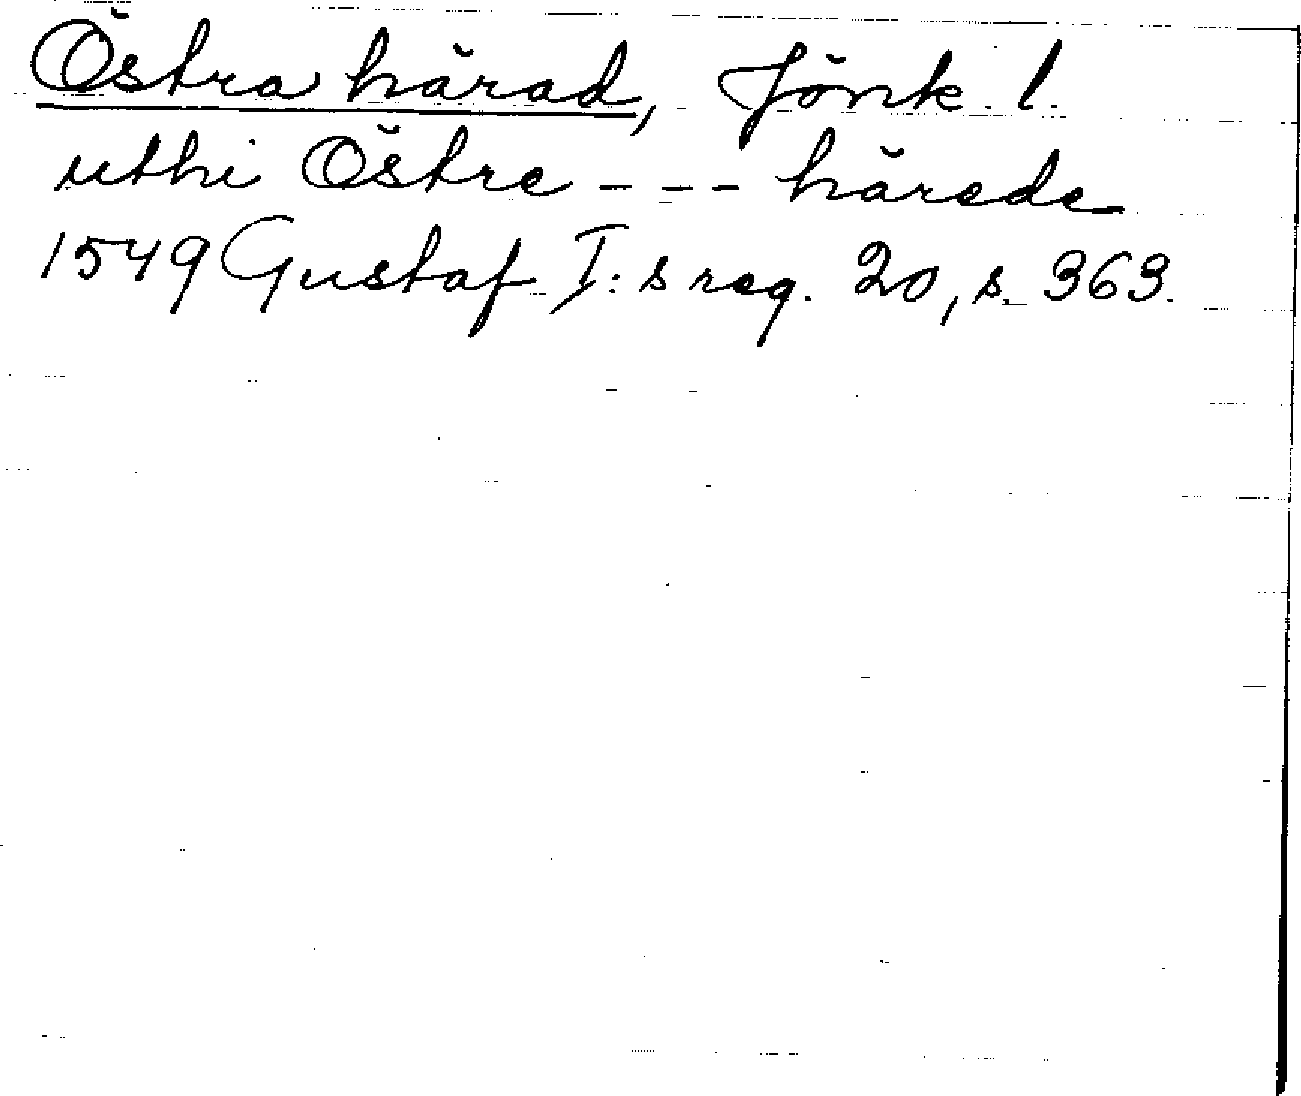 Östra härad, Jönk. l.
uthi Östre - - - härede
1549 Gustaf I:s reg. 20, s. 363.